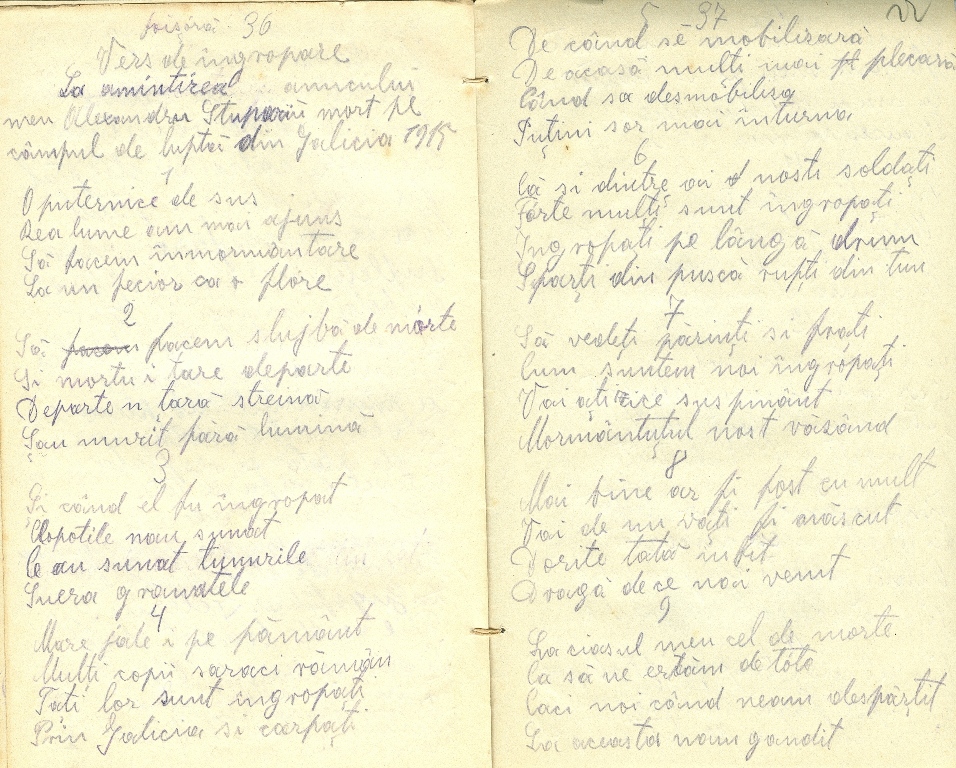 36
Vers de îngropare
La amintirea amicului
meu Alexandru Stupariu mort pe
câmpul de luptă din Galicia 1915
1
O puternice de sus
Rea lume am mai ajuns
Să facem înmormântare
La un fecior ca o flore
2
Să facem slujbă de mórte
Si mortu i tare departe
Departe n tară streină
Șau murit fără lumină
3
Și când el fu îngropat
Clopotile nau sunat
Ce au sunat tunurile
Suera granatele
4
Mare jale i pe pământ
Multi copii saraci rămân
Tati lor sunt ingropati
Prin Galicia si carpați
5 37
De când sê mobilisară
De acasă multi mai plecară
Când sa desmobilisa
Puțini sor mai înturna
6
Că si dintre ai nosti soldați
Forte mulți sunt îngropați
Ingropati pe lângă drum
Sparți din pușcă rupți din tun
7
Să vedeți părinți si frati
Cum suntem noi îngropați
Vai ați zice suspinânt
Mormântuțul nost văzând
8
Mai bine ar fi fost cu mult
Vai de nu vați fi născut
Dorite tată iubit
Dragă de ce nai venit
9
La ciasul meu cel de morte
Ca să ne ertăm de tóte
Caci noi când neam despărțit
La aceasta nam gandit